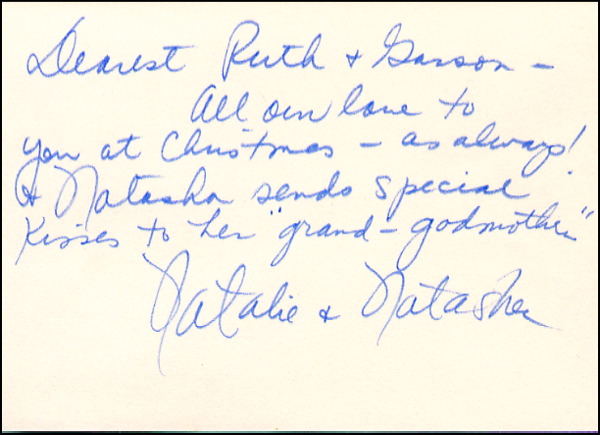 Dearest Ruth & Garson —
All our love to
you at Christmas — as always!
& Natasha sends special
kisses to her "grand-godmother"
Natalie & Natasha